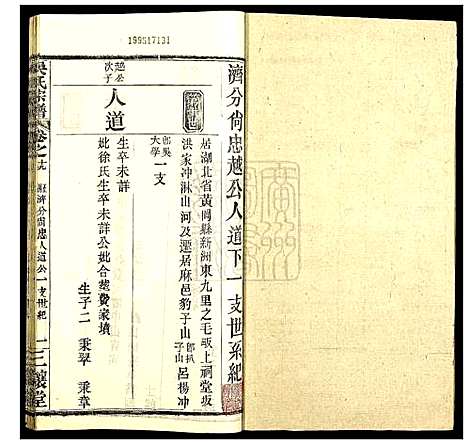 199517131
濟分尙忠越公人道下一支世系紀
居湖北省黃岡縣新洲東九里之毛坂上祠堂坂
洪家沖淋山河及遷居麻邑豹子山 卽扒子山 呂楊冲
卽吳大學一支
越公次子
人道
生卒未詳
妣徐氏生卒未詳公妣合葬費家墳
生子二 秉翠 秉章
吳氏宗譜
卷之十九
濟分尙忠人道公一支世紀
一
三讓堂